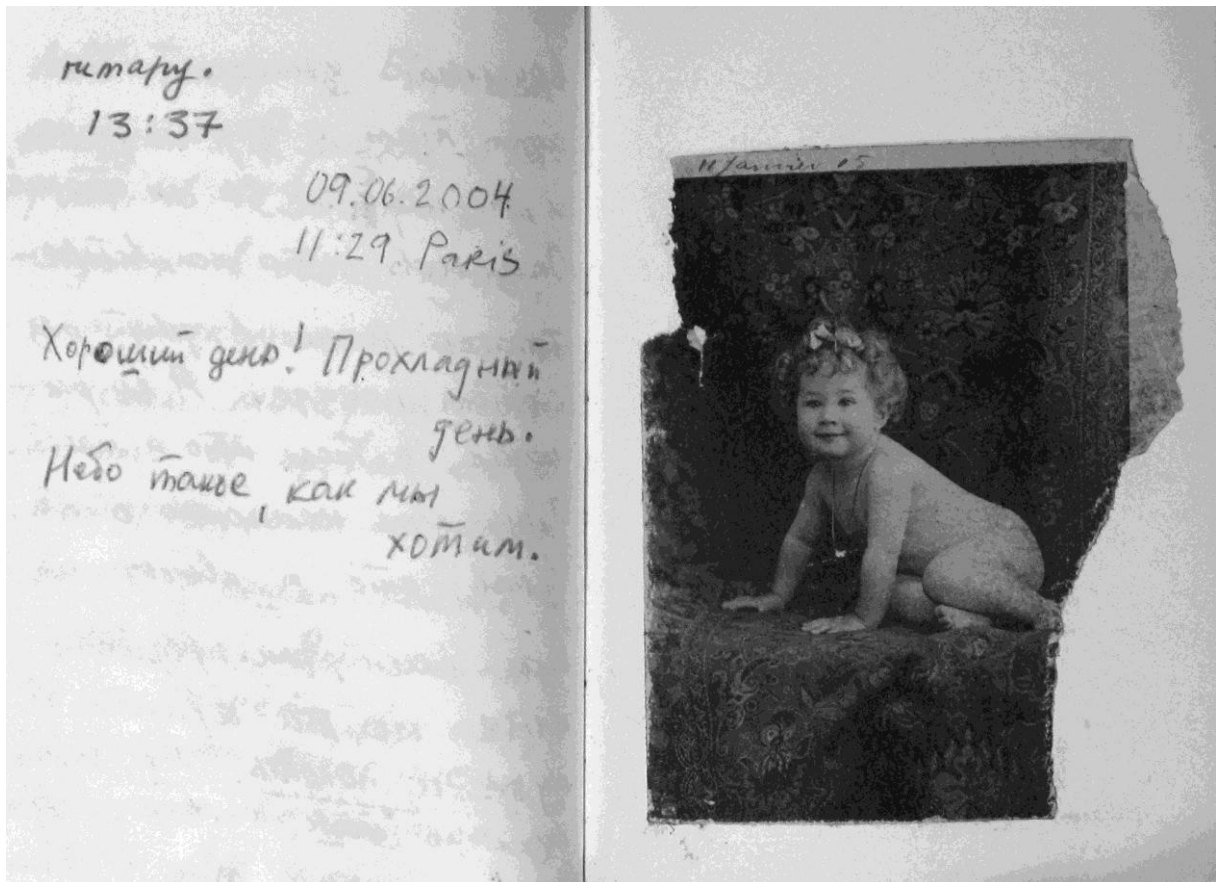 гитару.
13:37
09.06.2004
11:29 Paris
Хороший день! Прохладный
день.
Небо такое, как мы
хотим.
11 Janvier 05